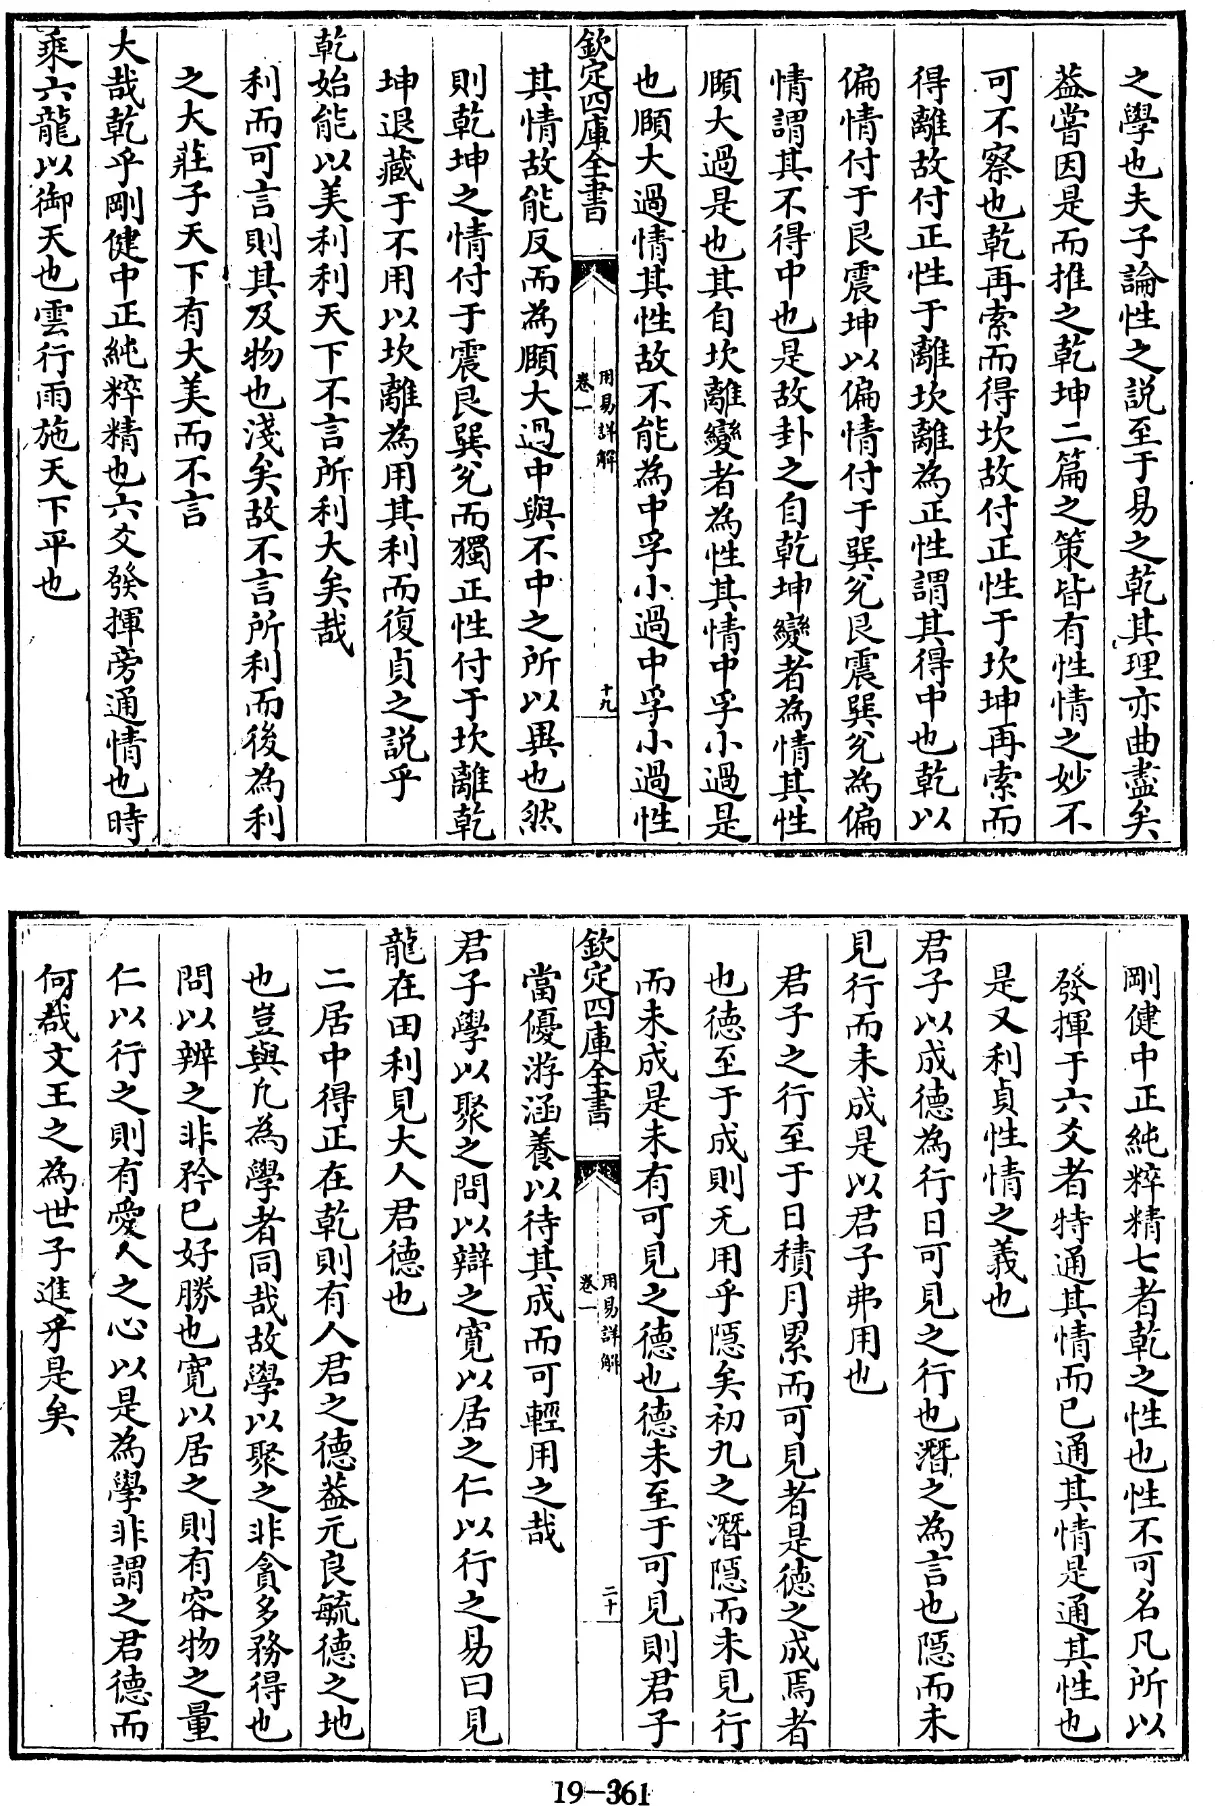 之學也夫子論性之説至于易之乾其理亦曲盡矣
葢嘗因是而推之乾坤二篇之策皆有性情之妙不
可不察也乾再索而得坎故付正性于坎坤再索而
得離故付正性于離坎離為正性謂其得中也乾以
偏情付于艮震坤以偏情付于巽兊艮震巽兊為偏
情謂其不得中也是故卦之自乾坤變者為情其性
頤大過是也其自坎離變者為性其情中孚小過是
也頤大過情其性故不能為中孚小過中孚小過性
欽定四庫全書
用易詳解
卷一
十九
其情故能反而為頤大過中與不中之所以異也然
則乾坤之情付于震艮巽兊而獨正性付于坎離乾
坤退藏于不用以坎離為用其利而復貞之説乎
乾始能以美利利天下不言所利大矣哉
利而可言則其及物也淺矣故不言所利而後為利
之大莊子天下有大美而不言
大哉乾乎剛健中正純粹精也六爻發揮旁通情也時
乘六龍以御天也雲行雨施天下平也
剛健中正純粹精七者乾之性也性不可名凡所以
發揮于六爻者特通其情而已通其情是通其性也
是又利貞性情之義也
君子以成德為行日可見之行也潛之為言也隱而未
見行而未成是以君子弗用也
君子之行至于日積月累而可見者是德之成焉者
也德至于成則无用乎隱矣初九之潛隱而未見行
而未成是未有可見之德也德未至于可見則君子
欽定四庫全書
用易詳解
卷一
二十
當優游涵養以待其成而可輕用之哉
君子學以聚之問以辯之寛以居之仁以行之易曰見
龍在田利見大人君德也
二居中得正在乾則有人君之德葢元良毓德之地
也豈與凡為學者同哉故學以聚之非貪多務得也
問以辨之非矜已好勝也寛以居之則有容物之量
仁以行之則有愛人之心以是為學非謂之君德而
何哉文王之為世子進乎是矣
19-361